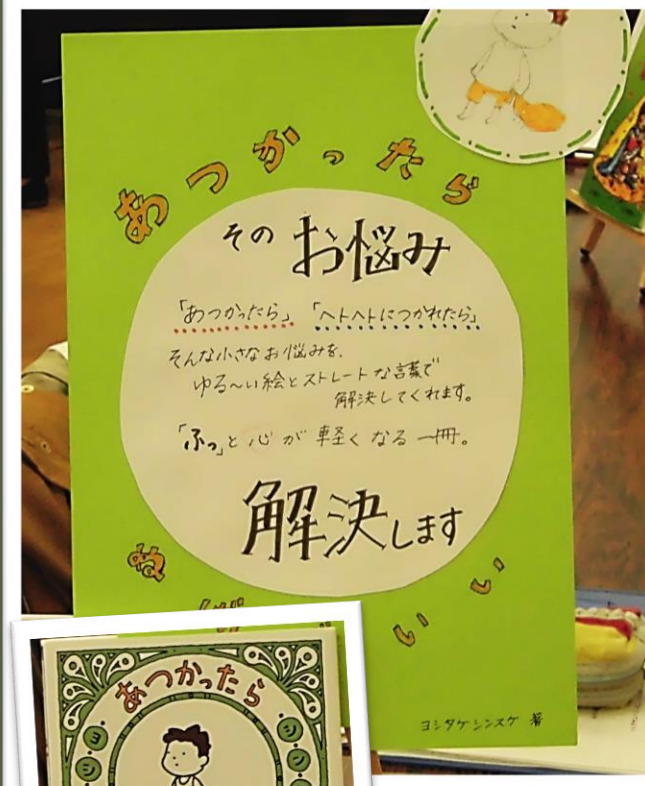 あつかったら
その お悩み
「あつかったら」 「ヘトヘトにつかれたら」
そんな小さなお悩みを、
ゆる〜い絵とストレートな言葉で
解決してくれます。
「ふっ」と心が軽くなる一冊。
解決します
ぬげばいい
ヨシタケシンスケ 著
あつかったら
ヨシ
シン